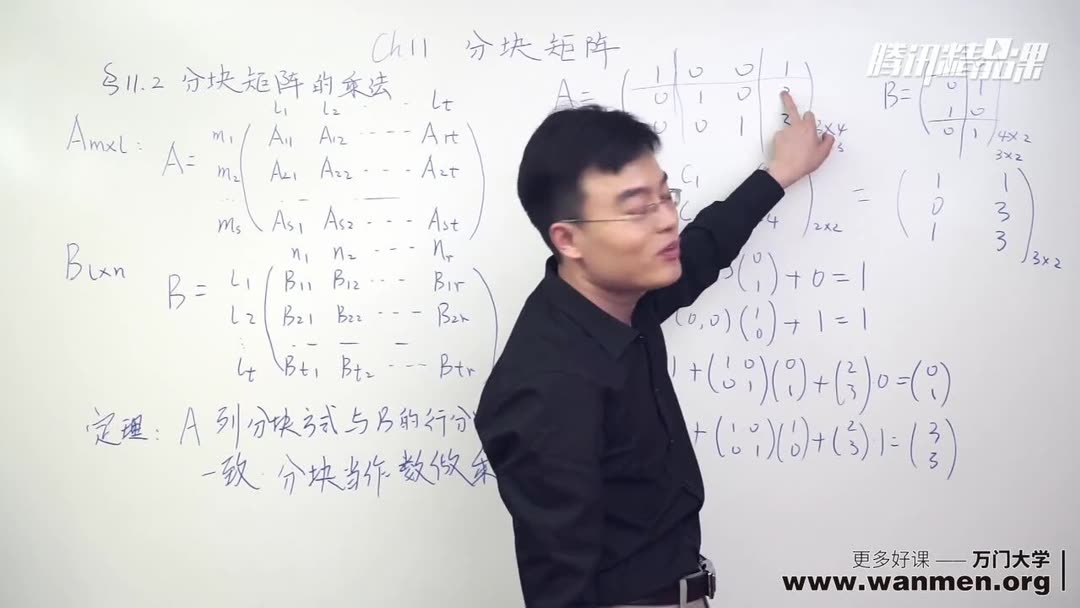 Ch11 分块矩阵
腾讯精品课
§11.2 分块矩阵的乘法
l1 l2 ... lt
Amxl: A=
m1 A11 A12 ... A1t
m2 A21 A22 ... A2t
... ...
ms As1 As2 ... Ast
n1 n2 ... nr
Blxn B=
l1 B11 B12 ... B1r
l2 B21 B22 ... B2r
... ...
lt Bt1 Bt2 ... Btr
定理: A 列分块方式与B的行分
一致. 分块当作数做
A=
1 0 0 1
0 1 0
0 0 1
3x4
B=
0 1
1 0
0 1
4x2
3x2
C1
2x2
=
1 1
0 3
1 3
3x2
(0 1) + 0 = 1
(0,0) (1 0) + 1 = 1
+ (1 0 0 1) (0 1) + (2 3) 0 = (0 1)
+ (1 0 0 1) (1 0) + (2 3) 1 = (3 3)
更多好课 —— 万门大学
www.wanmen.org